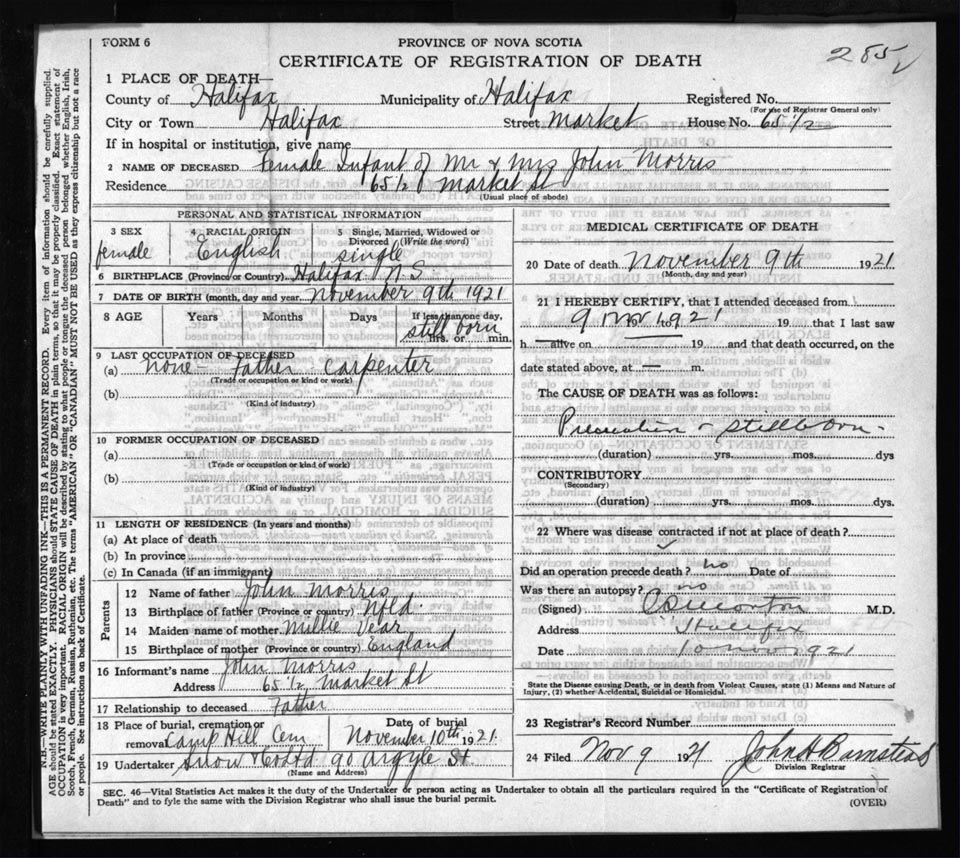 FORM 6
PROVINCE OF NOVA SCOTIA
285
CERTIFICATE OF REGISTRATION OF DEATH
1 PLACE OF DEATH—
County of Halifax Municipality of Halifax Registered No.
(For use of Registrar General only)
City or Town Halifax Street Market House No. 65 1/2
If in hospital or institution, give name
2 NAME OF DECEASED Female Infant of Mr & Mrs John Morris
Residence 65 1/2 Market St
(Usual place of abode)
PERSONAL AND STATISTICAL INFORMATION
3 SEX 4 RACIAL ORIGIN 5 Single, Married, Widowed or
Divorced (Write the word)
female English single
6 BIRTHPLACE (Province or Country) Halifax N S
7 DATE OF BIRTH (month, day and year) November 9th 1921
8 AGE Years Months Days If less than one day,
still born
hrs. or min.
9 LAST OCCUPATION OF DECEASED
(a) none - Father Carpenter
(Trade or occupation or kind or work)
(b)
(Kind of Industry)
10 FORMER OCCUPATION OF DECEASED
(a)
(Trade or occupation or kind or work)
(b)
(Kind of Industry)
11 LENGTH OF RESIDENCE (In years and months)
(a) At place of death
(b) In province
(c) In Canada (if an immigrant)
Parents
12 Name of father John Morris
13 Birthplace of father (Province or country) Nfld.
14 Maiden name of mother Millie Vear
15 Birthplace of mother (Province or country) England
16 Informant's name John Morris
Address 65 1/2 Market St
17 Relationship to deceased Father
18 Place of burial, cremation or Date of burial
removal Camp Hill Cem November 10th 1921
19 Undertaker Snow & Co Ltd 90 Argyle St.
(Name and Address)
MEDICAL CERTIFICATE OF DEATH
20 Date of death November 9th 1921
(Month, day and year)
21 I HEREBY CERTIFY, that I attended deceased from
9 Nov 1921
19 that I last saw
h alive on — 19 and that death occurred, on the
date stated above, at — m.
The CAUSE OF DEATH was as follows:
- stillborn -
(duration) yrs. mos. dys
CONTRIBUTORY
(Secondary)
(duration) yrs. mos. dys.
22 Where was disease contracted if not at place of death?
Did an operation precede death? no Date of
Was there an autopsy? no
(Signed) Morton M.D.
Address Halifax
Date 10 Nov 1921
State the Disease causing Death, or in death from Violent Causes, state (1) Means and Nature of
Injury, (2) whether Accidental, Suicidal or Homicidal.
23 Registrar's Record Number
24 Filed Nov 9 1921 John H Barnstead
Division Registrar
SEC. 46—Vital Statistics Act makes it the duty of the Undertaker or person acting as Undertaker to obtain all the particulars required in the "Certificate of Registration of
Death" and to fyle the same with the Division Registrar who shall issue the burial permit.
(OVER)
N.B.—WRITE PLAINLY WITH UNFADING INK—THIS IS A PERMANENT RECORD. Every item of information should be carefully supplied.
AGE should be stated EXACTLY. PHYSICIANS should STATE CAUSE OF DEATH in plain terms, so that it may be properly classified. Exact statement of
OCCUPATION is very important. RACIAL ORIGIN will be described by stating to what people or tongue the deceased person belonged whether English, Irish,
Scotch, French, German, Russian, Ruthenian, etc. The terms "AMERICAN" OR "CANADIAN" MUST NOT BE USED as they express citizenship but not a race
or people. See instructions on back of Certificate.